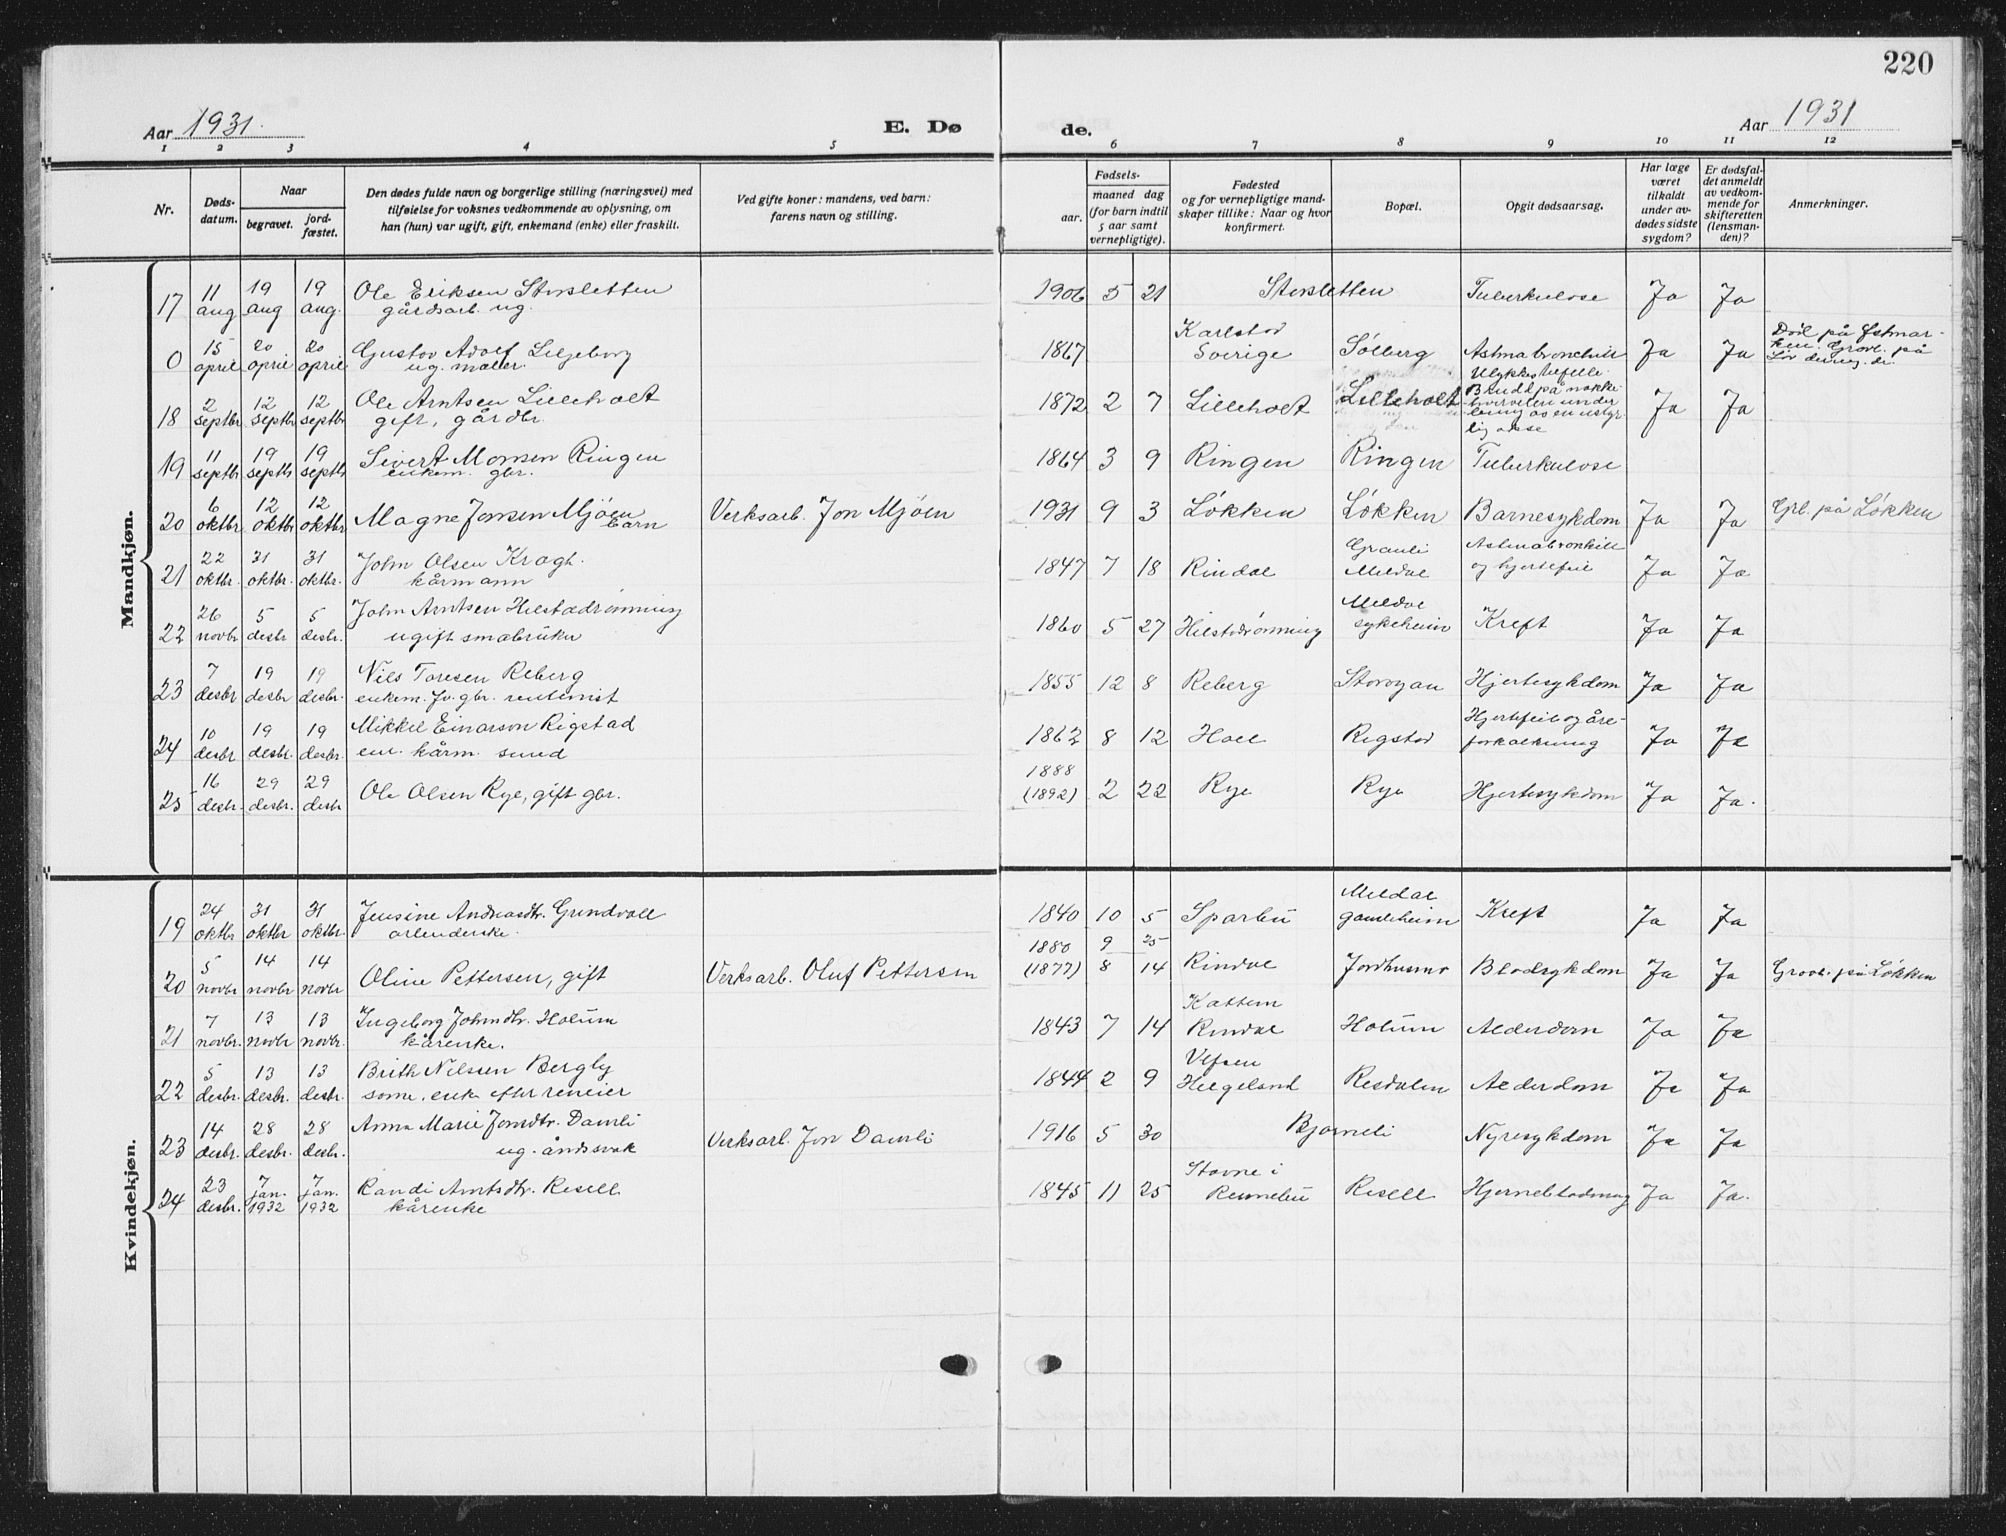 220
Aar 1931.
E. Dø
de.
Aar 1931
1 2 3 4 5 6 7 8 9 10 11 12
Nr.
Døds-
datum.
Naar
begravet.
jord-
fæstet.
Den dødes fulde navn og borgerlige stilling (næringsvei) med
tilføielse for voksnes vedkommende av oplysning, om
han (hun) var ugift, gift, enkemand (enke) eller fraskilt.
Ved gifte koner: mandens, ved barn:
farens navn og stilling.
Fødsels-
aar.
maaned dag
(for barn indtil
5 aar samt
vernepligtige).
Fødested
og for vernepligtige mand-
skaper tillike: Naar og hvor
konfirmert.
Bopæl.
Opgit dødsaarsag.
Har læge
været
tilkaldt
under av-
dødes sidste
sygdom?
Er dødsfal-
det anmeldt
av vedkom-
mende for
skifteretten
(lensman-
den)?
Anmerkninger.
Mandkjøn.
17 11 aug 19 aug 19 aug. Ole Eriksen Storsletten
gårdsarb. ug.
1906 5 21 Storsletten Tuberkulose Ja Ja
0 15 april 20 april 20 april Gustov Adolf Liljeborg
ug. maller.
1867 Karlstad
Sverige Solberg Astmabronchitt Ja Ja
på Østmar-
ken. Gravl. på
18 2 septbr 12 septbr 12 septbr Ole Arntsen Lilleholt
gift, gårdbr.
1872 2 7 Lilleholt Lilleholt Ulykkestilfelle.
Brudd på nakke-
hvirvelen under
leiing av en ustyr-
lig okse Ja Ja
19 11 septbr 19 septbr 19 septb Sivert Monsen Ringen
enkem. gbr.
1864 3 9 Ringen Ringen Tuberkulose
20 6 oktbr 12 oktbr 12 oktbr Magne Jonsen Mjøen
barn
Verksarb. Jon Mjøen
1931 9 3 Løkken Løkken Barnesykdom Ja Ja Grl. på Løkken
21 22 oktbr. 31 oktbr. 31 oktbr. John Olsen Kragh.
kårmann
1847 7 18 Rindal Granli
Meldal Astmabronkitt
og hjertefeil Ja Ja
22 26 novbr 5 desbr 5 desbr. John Arntsen Hilstadrønning
ugift småbruker
1860 5 27 Hilstadrønning Meldal
sykeheim Kreft Ja Ja
23 7 desbr 19 desbr 19 desbr. Nils Toresen Reberg
enkem. fv. gbr. rentenist
1855 12 8 Reberg Storøyan Hjertesykdom Ja Ja
24 10 desbr 19 desbr. 19 desbr. Mikkel Einarson Rigstad
em. kårm. smed
1862 8 12 Hoel Rigstad Hjertefeil og åre-
forkalkning Ja Ja
25 16 desbr. 29 desbr. 29 desbr Ole Olsen Rye, gift gbr.
1888
(1892) 2 22 Rye Rye Hjertesykdom Ja Ja.
Kvindekjøn.
19 24 oktbr 31 oktbr 31 oktbr. Jensine Andreasdtr. Grindvoll
arbenderske.
1840 10 5 Sparbu Meldal
gamleheim Kreft Ja Ja
20 5 novbr 14 novbr 14 novbr Oline Pettersen, gift
Verksarb. Oluf Pettersen
1880 9 25
(1877) 8 14 Rindal Jordhusmo Blodsykdom Ja Ja Gravl. på Løkken
21 7 novbr. 13 novbr 13 novbr. Ingeborg Johnsdtr. Holum
kårenke.
1843 7 14 Kattem
Rindal Holum Alderdom Ja Ja
22 5 desbr. 13 desbr. 13 desbr. Brith Nilssen Bergly
some. enk. efter reneier
1844 2 9 Vefsen
Helgeland Resdalen Alderdom Ja Ja
23 14 desbr. 28 desbr. 28 desbr. Anna Marie Jonsdtr. Damli
ug. åndssvak
Verksarb. Jon Damli
1916 5 30 Bjørnli Nyresykdom Ja Ja
24 23 desbr. 7 jan. 1932 7 jan. 1932 Randi Arntsdtr. Resell
kårenke
1845 11 25 Stavne i
Rennebu Resell Hjerneblødning Ja Ja.